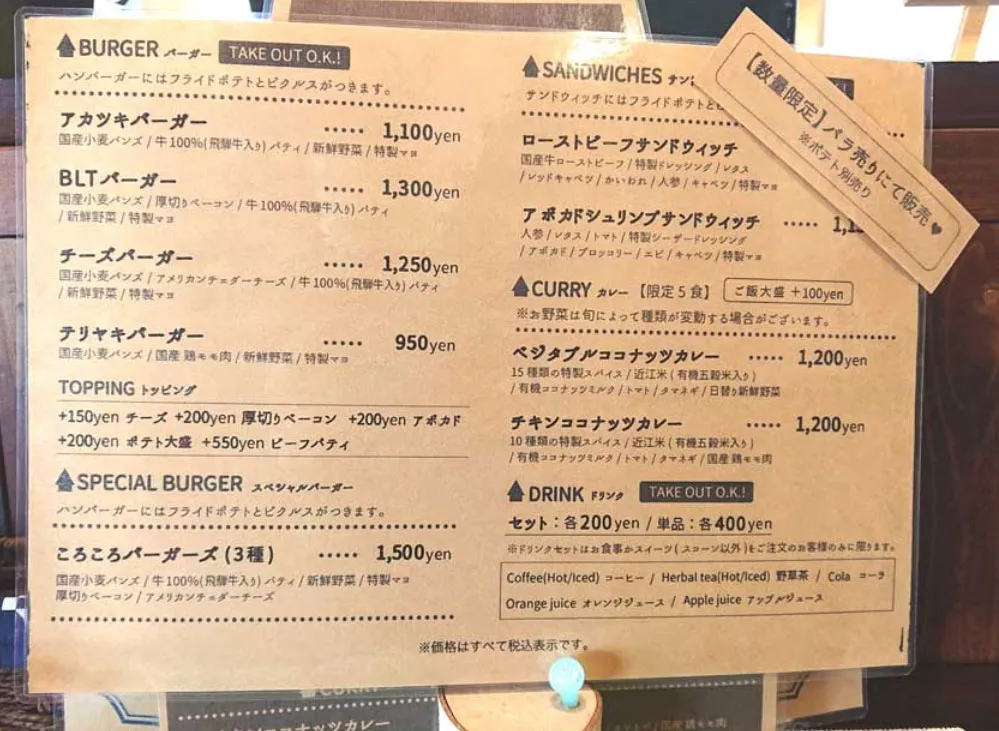 BURGER バーガー TAKE OUT O.K.!
ハンバーガーにはフライドポテトとピクルスがつきます。
アカツキバーガー ····· 1,100yen
国産小麦バンズ / 牛100%(飛騨牛入り) パティ / 新鮮野菜 / 特製マヨ
BLTバーガー ····· 1,300yen
国産小麦バンズ / 厚切りベーコン / 牛100%(飛騨牛入り) パティ
/ 新鮮野菜 / 特製マヨ
チーズバーガー ····· 1,250yen
国産小麦バンズ / アメリカンチェダーチーズ / 牛100%(飛騨牛入り) パティ
/ 新鮮野菜 / 特製マヨ
テリヤキバーガー ····· 950yen
国産小麦バンズ / 国産 鶏モモ肉 / 新鮮野菜 / 特製マヨ
TOPPING トッピング
+150yen チーズ +200yen 厚切りベーコン +200yen アボカド
+200yen ポテト大盛 +550yen ビーフパティ
SPECIAL BURGER スペシャルバーガー
ハンバーガーにはフライドポテトとピクルスがつきます。
ころころバーガーズ (3種) ····· 1,500yen
国産小麦バンズ / 牛100%(飛騨牛入り) パティ / 新鮮野菜 / 特製マヨ
厚切りベーコン / アメリカンチェダーチーズ
SANDWICHES サン
サンドウィッチにはフライドポテトと
ローストビーフサンドウィッチ
国産牛ローストビーフ / 特製ドレッシング / レタス
/ レッドキャベツ / かいわれ / 人参 / キャベツ / 特製マヨ
アボカドシュリンプサンドウィッチ ····· 1,
人参 / レタス / トマト / 特製シーザードレッシング
/ アボカド / ブロッコリー / エビ / キャベツ / 特製マヨ
【数量限定】バラ売りにて販売♥
※ポテト別売り
CURRY カレー 【限定5食】 ご飯大盛 +100yen
※お野菜は旬によって種類が変動する場合がございます。
ベジタブルココナッツカレー ····· 1,200yen
15 種類の特製スパイス / 近江米 ( 有機五穀米入り )
/ 有機ココナッツミルク / トマト / タマネギ / 日替り新鮮野菜
チキンココナッツカレー ····· 1,200yen
10 種類の特製スパイス / 近江米 ( 有機五穀米入り )
/ 有機ココナッツミルク / トマト / タマネギ / 国産 鶏モモ肉
DRINK ドリンク TAKE OUT O.K.!
セット：各200yen / 単品：各400yen
※ドリンクセットはお食事かスイーツ ( スコーン以外 ) をご注文のお客様のみに限ります。
Coffee(Hot/Iced) コーヒー / Herbal tea(Hot/Iced) 野草茶 / Cola コーラ
Orange juice オレンジジュース / Apple juice アップルジュース
※価格はすべて税込表示です。
CURRY
ココナッツカレー
/ 国産 鶏モモ肉